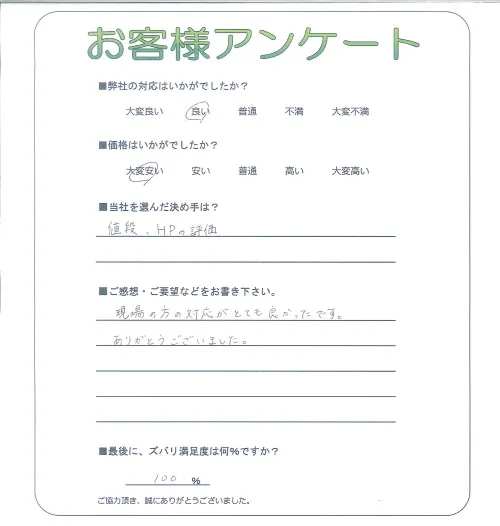 お客様アンケート
■弊社の対応はいかがでしたか？
大変良い 良い 普通 不満 大変不満
■価格はいかがでしたか？
大変安い 安い 普通 高い 大変高い
■当社を選んだ決め手は？
値段、HPの評価
■ご感想・ご要望などをお書き下さい。
現場の方の対応がとても良かったです。
ありがとうございました。
■最後に、ズバリ満足度は何%ですか？
100 %
ご協力頂き、誠にありがとうございました。